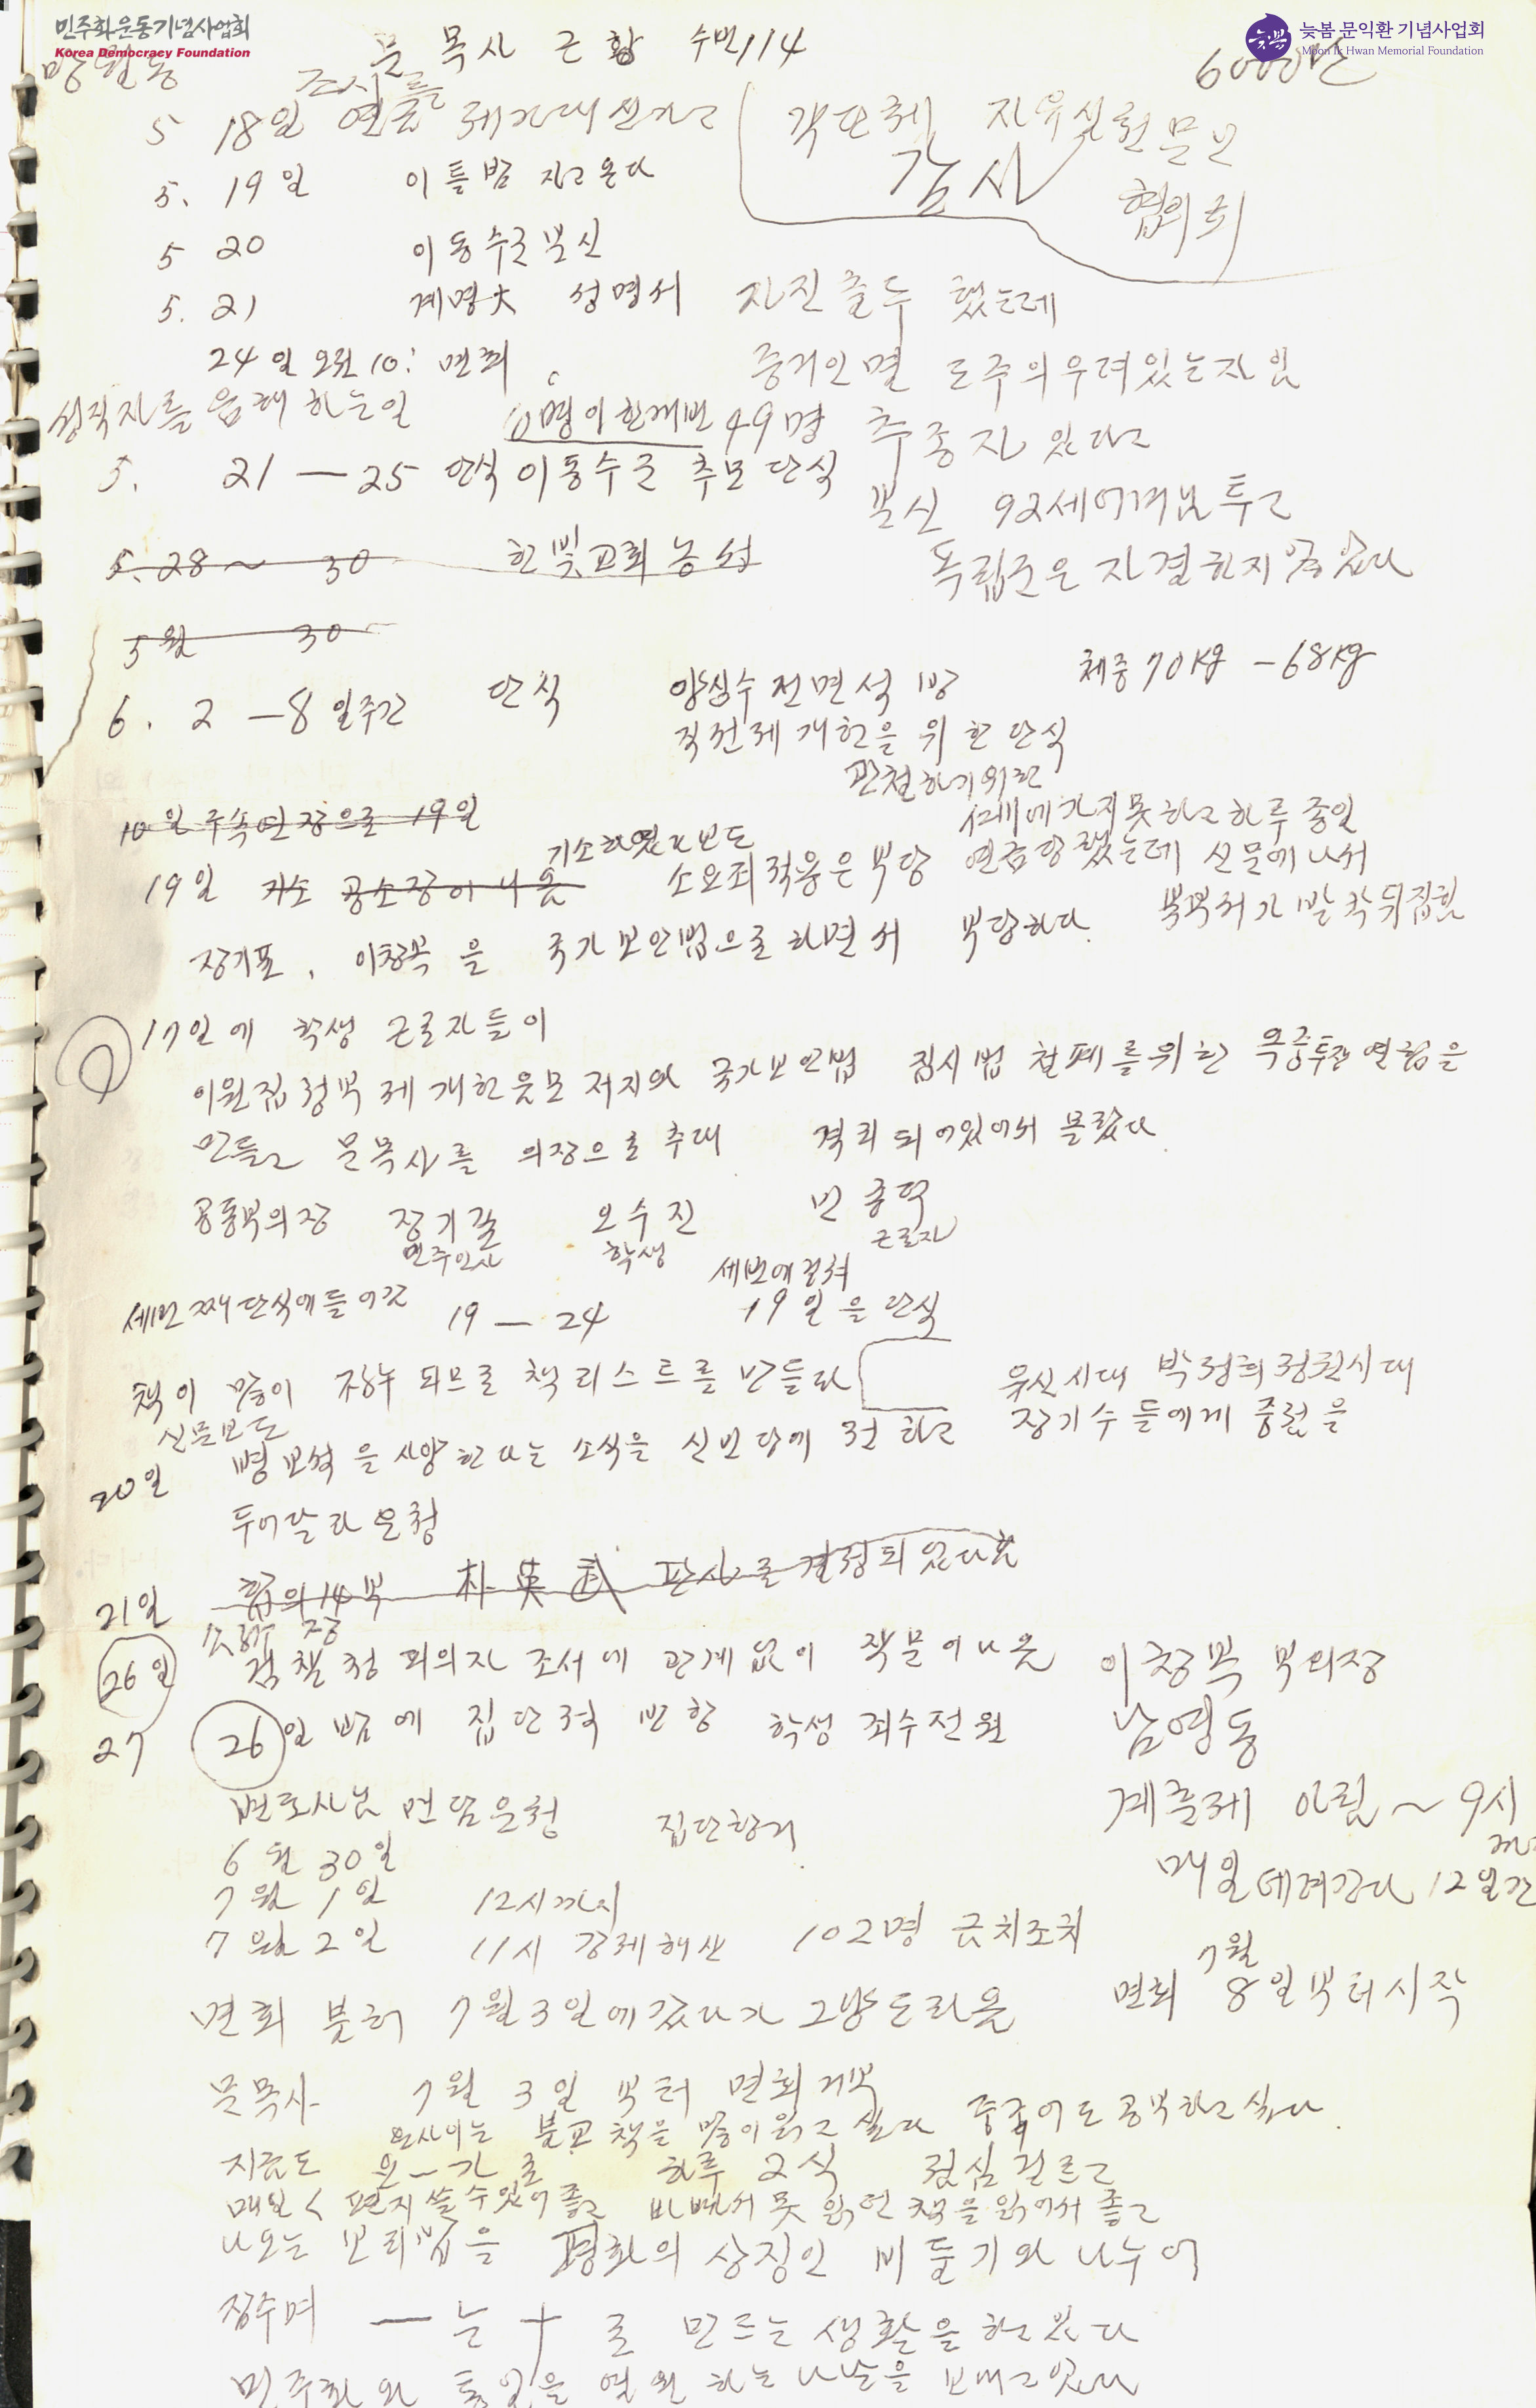 민주화운동기념사업회
Korea Democracy Foundation
늦봄 문익환 기념사업회
Moon Ik Hwan Memorial Foundation
문 목사 근황 수번 114
망월동
6000만
5 18일 연금
각 단체 자유실천문인
협의회
감사
5. 19일 이틀밤 자고 온다
5 20 이동수군 분신
5. 21 계명大 성명서 자진출두 했는데
24일 오전 10: 면회
증거인멸 도주의 우려있는 자임
성직자를 음해 하는 일
10명이 한께번 49명 추종자 있다고
5. 21 — 25 단식 이동수군 추모 단식
분신 92세 투고
5. 28 ~ 30 한빛교회 농성
독립군은 자결하지 않았다
5월 30
6. 2 — 8 일주간 단식 양심수 전면 석방 체중 70kg — 68kg
직선제 개헌을 위한 단식
관철하기 위한
10일 구속연장으로 19일
가지 못하고 하루종일
기소하였다 보도
19일 기소 공소장이 나옴 소요죄 적용은 부당 연금당했는데 신문에 나서
장기표, 이창복을 국가보안법으로 하면서 부당하다. 북부서가 발칵 뒤집힘
17일에 학생 근로자들이
이원집정부제 개헌음모 저지와 국가보안법 집시법 철폐를 위한 옥중투쟁연합을
만들고 문목사를 의장으로 추대 격리되어 있어서 몰랐다.
공동부의장 장기갈 오수진 민종덕
민주인사 학생 근로자
세번에 걸쳐
세번째 단식에 들어감 19 — 24 19일을 단식
책이 많이 장뇌되므로 책 리스트를 만들라
유신시대 박정희정권시대
신문보도
20일 병보석을 사양한다는 소식을 신민당에 전하고 장기수들에게 중점을
두어달라 요청
21일 합의 14부 朴英武 판사로 결정되었다고
공소장
26일 검찰청 피의자 조서에 관계없이 작문이 나옴 이창복 부의장
27 26일 밤에 집단적 반항 학생 죄수 전원 남영동
변호사님 면담요청 집단항거
계훈제 아침 ~ 9시
6월 30일
매일 데려간다 12일간
7월 1일 12시까지
7월 2일 11시 강제해산 102명 조치
면회 불허 7월 3일에 갔다가 그냥 돌라옴 면회 7월 8일부터 시작
문목사 7월 3일부터 면회 거부
불교책을 많이 읽고 싶다 중국어도 공부하고 싶다.
지금도 요-가로 하루 2식 점심 거르고
매일 편지 쓸 수 있어 좋고 바빠서 못 읽던 책을 읽어서 좋고
나오는 보리밥을 평화의 상징인 비둘기와 나누어
잡수며 ㅡ는 十로 만드는 생활을 하고 있다
민주화와 통일을 염원하는 나날을 보내고 있다